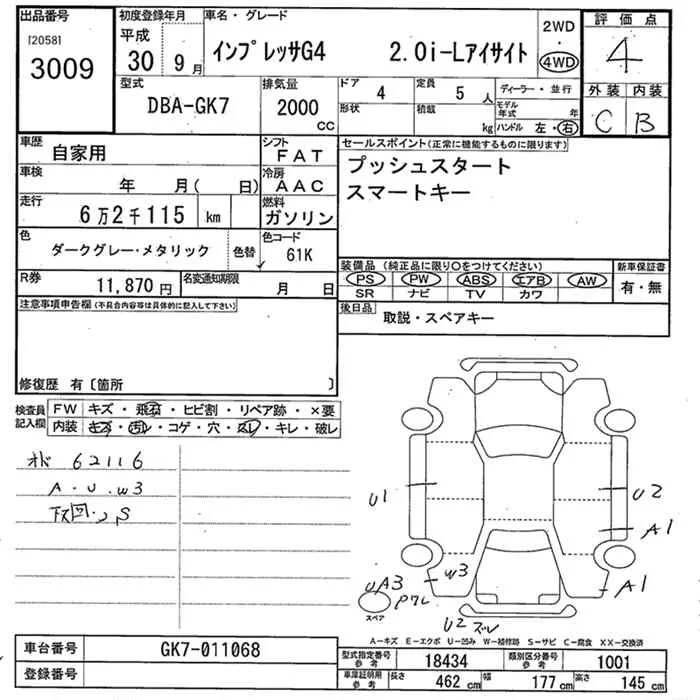 出品番号
[2058]
3009
初度登録年月
平成
30 9月
車名・グレード
インプレッサG4 2.0i-Lアイサイト
2WD
4WD
評価点
4
外装 内装
C B
型式
DBA-GK7
排気量
2000
CC
ドア
4
形状
定員
5人
積載
kg
ディーラー・並行
モデル
年式 年
ハンドル 左・右
車歴
自家用
シフト
FAT
車検
年 月( 日)
冷房
AAC
走行
6万2千115 km
燃料
ガソリン
色
ダークグレー・メタリック
色替
色コード
61K
R券
11,870円
名変通知期限
月 日
セールスポイント(正常に機能するものに限ります)
プッシュスタート
スマートキー
装備品 (純正品に限り○をつけてください)
PS PW ABS エアB AW
SR ナビ TV カワ
新車保証書
有・無
後日品
取説・スペアキー
注意事項申告欄(不具合内容等は具体的に記入して下さい)
修復歴 有〔箇所 〕
検査員
記入欄
FW キズ・飛石・ヒビ割・リペア跡・×要
内装 キズ・汚レ・コゲ・穴・スレ・キレ・破レ
オド 62116
A・U・W3
下回・S
U1
U2
A1
A1
W3
UA3
スペア
U2 スレ
A−キズ E−エクボ U−凹み W−補修跡 S−サビ C−腐食 XX−交換済
車台番号
GK7-011068
登録番号
型式指定番号
参考
18434
類別区分番号
参考
1001
車庫証明用
参考
長さ
462 cm
幅
177 cm
高さ
145 cm